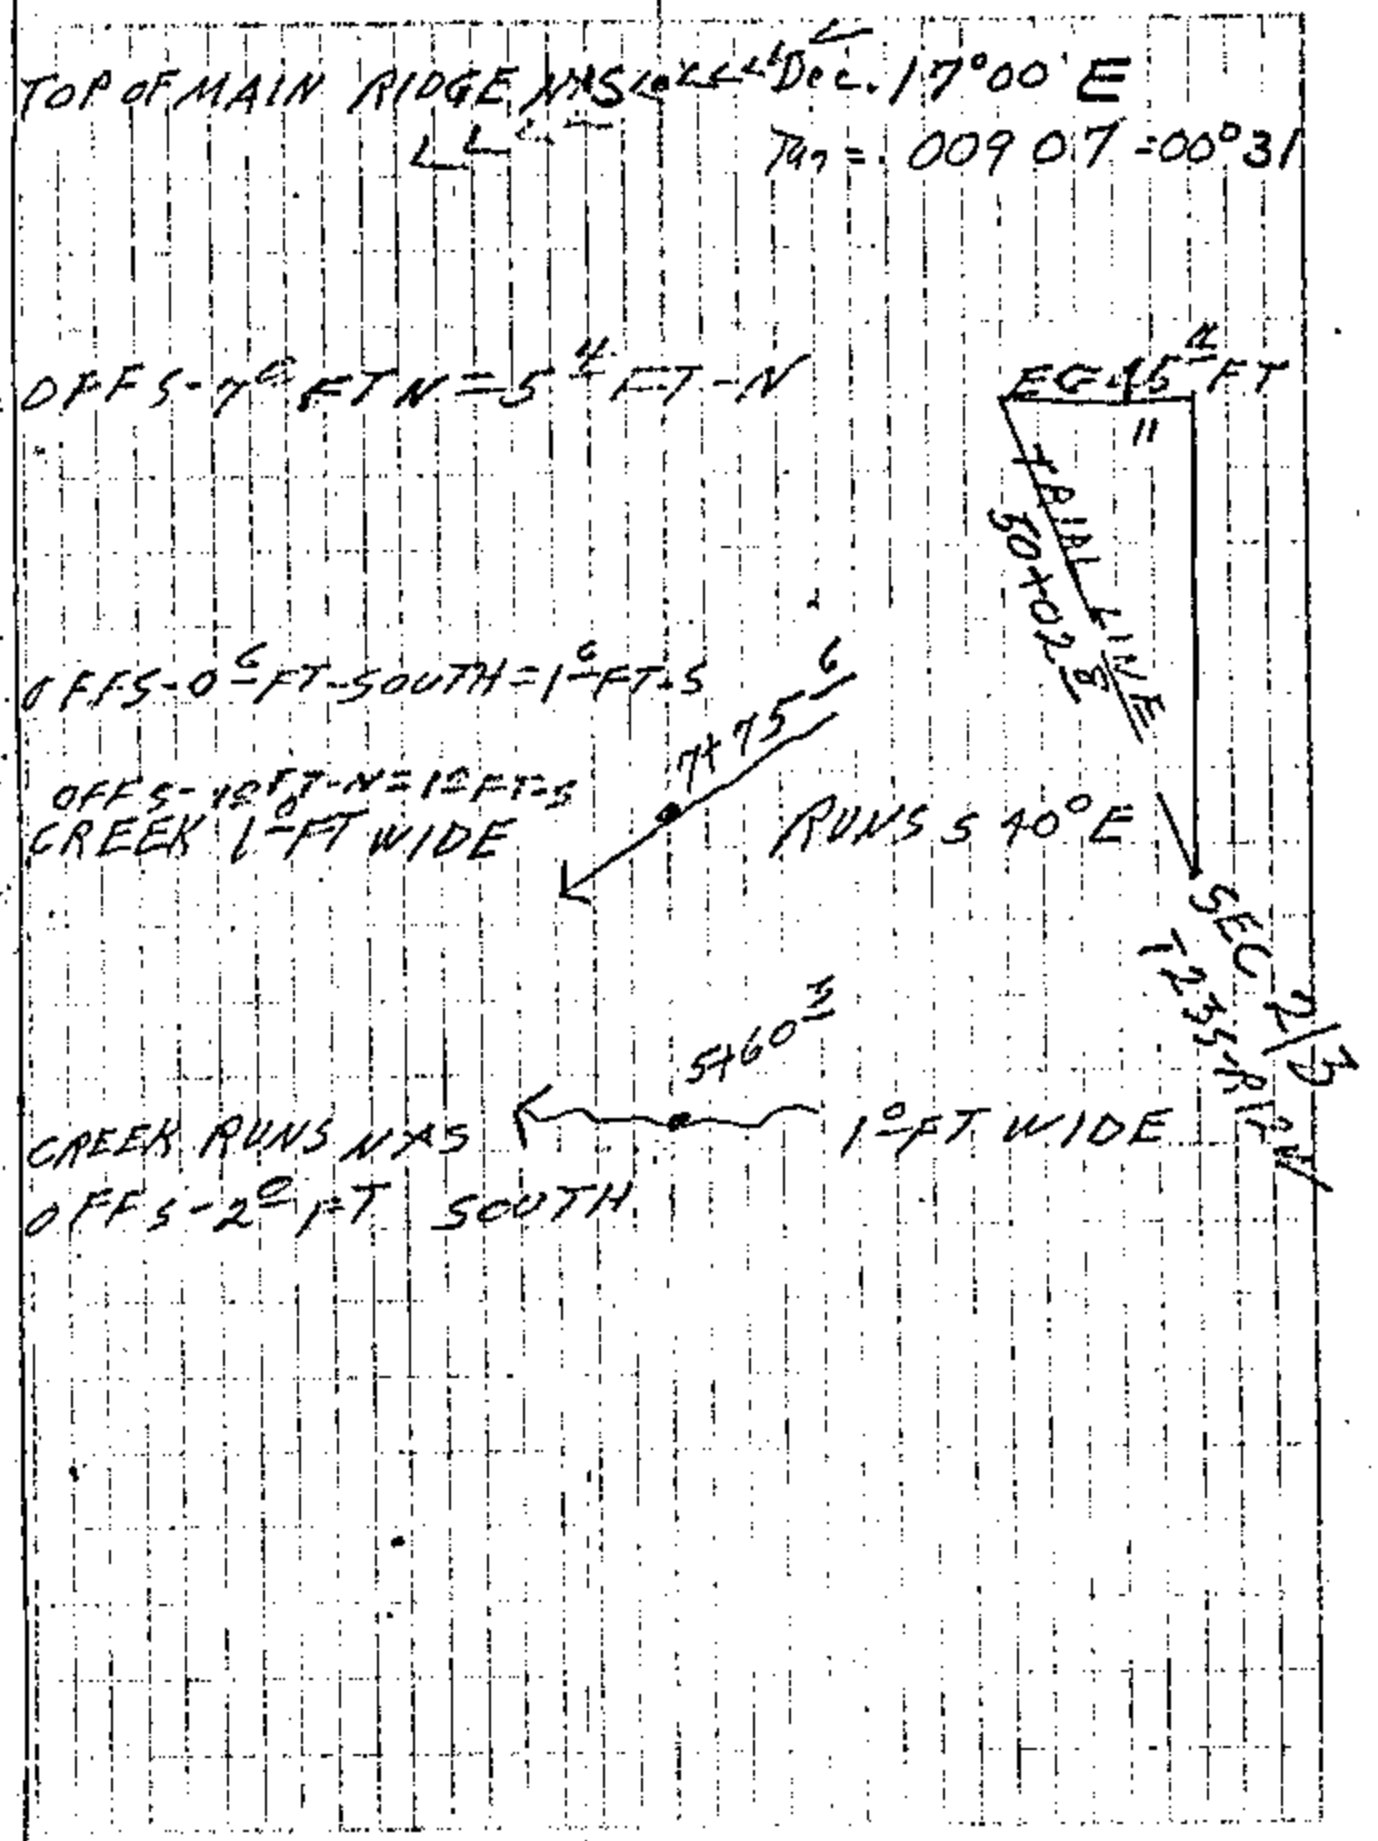 TOP OF MAIN RIDGE N+S Dec. 17°00' E
Tan = .00907 = 00°31
OFFS-7⁰ FT N = 5⁴ FT-N
EC 45⁴ FT
"
TRIAL LINE
50+02⁸
OFFS-0⁶ FT-SOUTH = 1⁶ FT-S
7+75⁶
FT-N = 1⁰ FT-S
CREEK 1⁰ FT WIDE
RUNS S 40° E
SEC 2/3
T23S-R1
5+60³
CREEK RUNS N+S
1⁰ FT WIDE
OFFS-2⁰ FT SOUTH